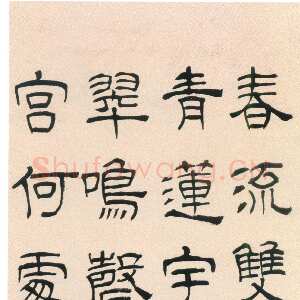 春流雙
青蓮宇
翠鳴
宮何處
Shufawang.cn